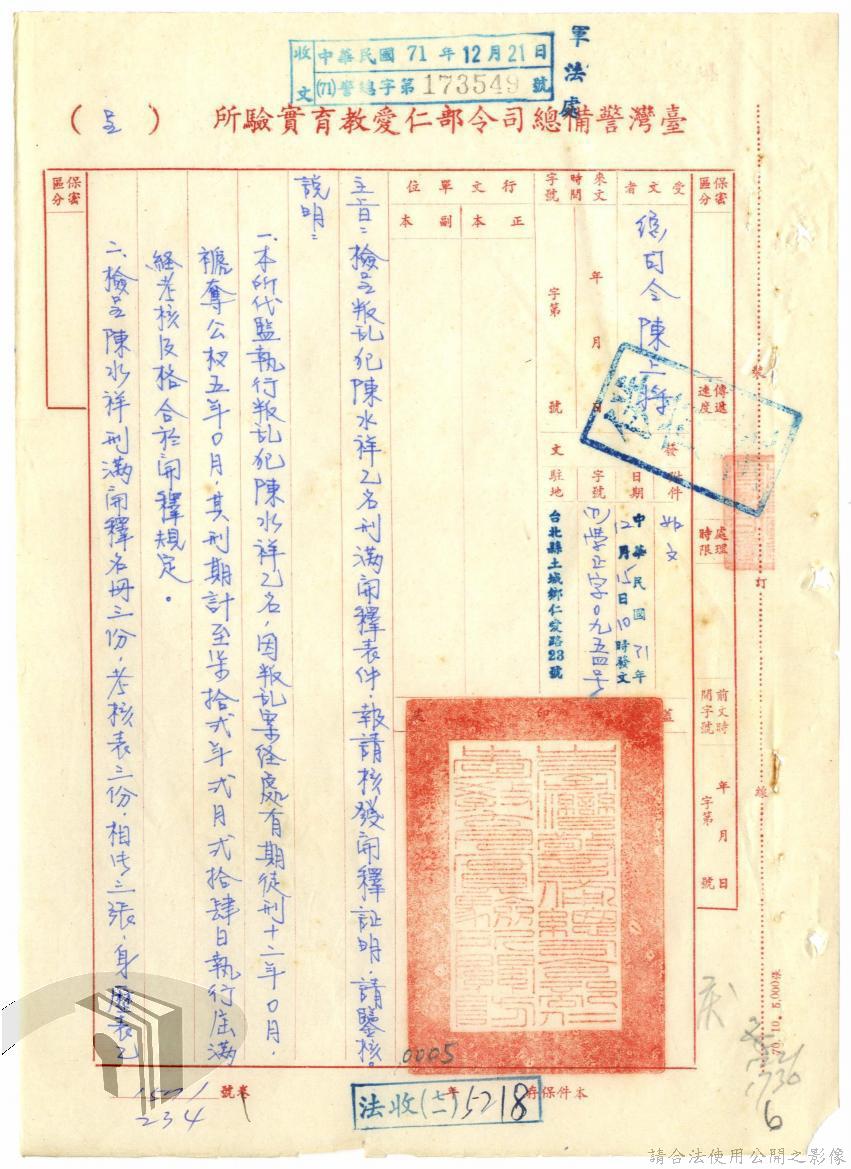 收文
中華民國71年12月21日
(71)警總字第173549號
軍法處
臺灣警備總司令部仁愛教育實驗所
(呈)
保密區分
傳遞速度
處理時限
前文時間字號
年 月 日
字第 號
受文者
總司令陳上將
附件
如文
來文
時間
年 月 日
字號
字第 號
發文
日期
中華民國71年12月15日10時發文
字號
學正字0九五四号
駐地
台北縣土城鄉仁愛路23號
行文單位
正本
副本
蓋印
主旨：檢呈叛乱犯陳水祥乙名刑滿開釋表件，報請核發開釋証明，請鑒核。
說明：
一、本所代監執行叛乱犯陳水祥乙名，因叛乱案经處有期徒刑十二年0月，
褫奪公权五年0月，其刑期計至柒拾弍年弍月弍拾肆日執行屆滿
經考核及格合於開釋規定。
二、檢呈陳水祥刑滿開釋名冊三份，考核表三份，相片三張，身歷表乙
保密區分
裝
訂
線
70.10. 5,000張
0005
本件保存 年
卷號
234
法收(七一)5218
6
請合法使用公開之影像